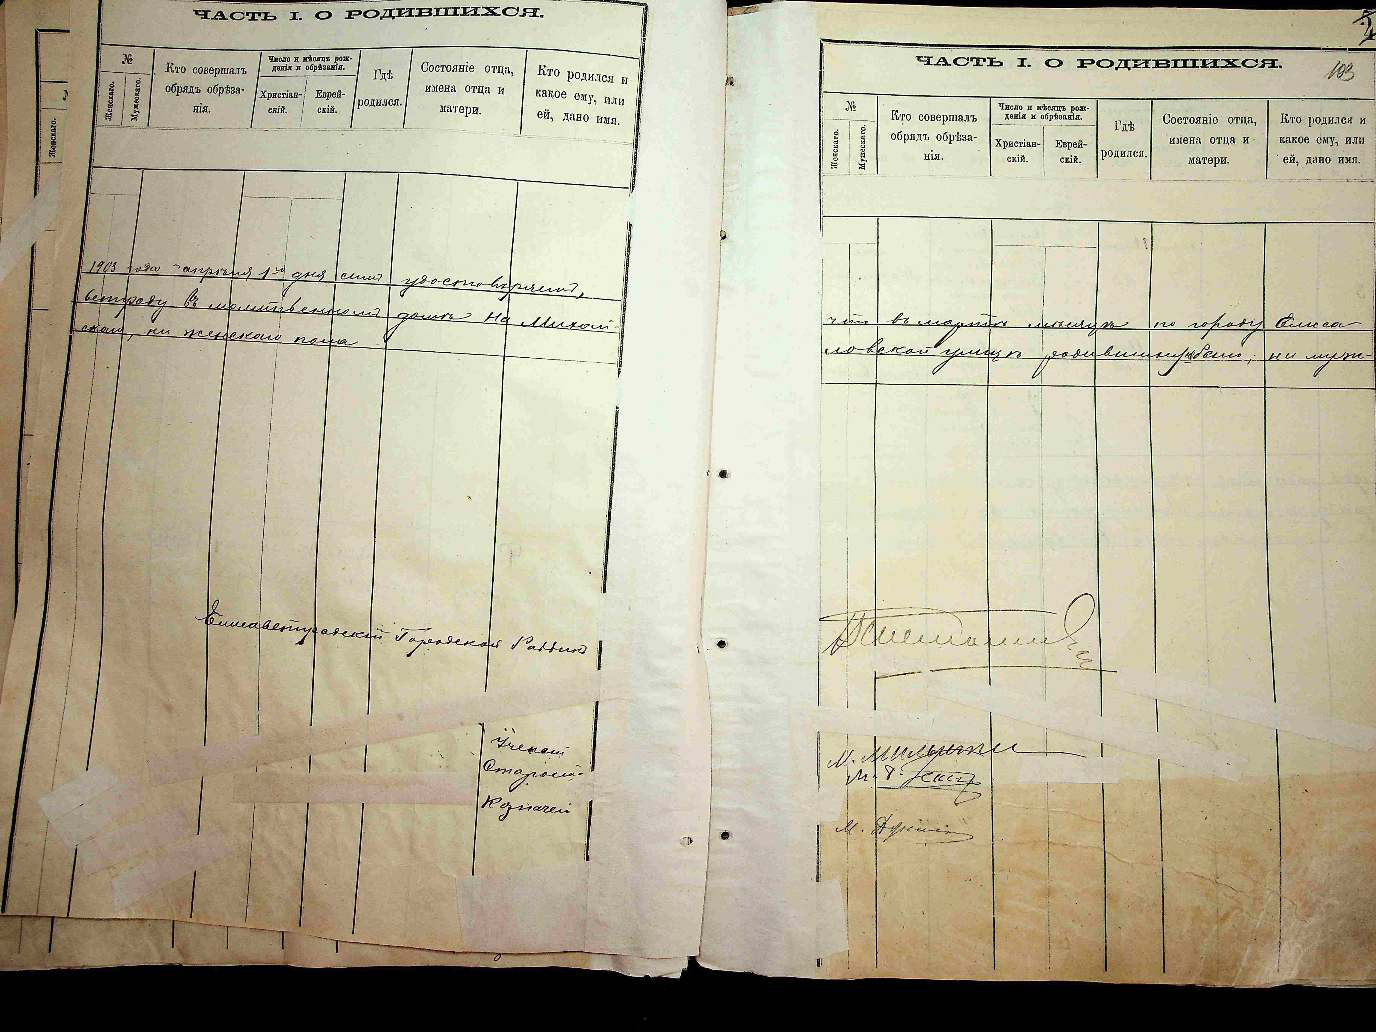 ЧАСТЬ I. О РОДИВШИХСЯ.
№
Женскаго.
Мужескаго.
Кто совершалъ
обрядъ обрѣза-
нія.
Число и мѣсяцъ рож-
денія и обрѣзанія.
Христіан-
скій.
Еврей-
скій.
Гдѣ
родился.
Состояніе отца,
имена отца и
матери.
Кто родился и
какое ему, или
ей, дано имя.
Женскаго.
1903 года апрѣля 1го дня симъ удостовѣряемъ,
ветграду въ молитвенномъ домѣ на Михай-
скаго, ни женскаго пола
Елисаветградскій Городской Раввинъ
Ученый
Староста
Казначей
ЧАСТЬ I. О РОДИВШИХСЯ.
103
№
Женскаго.
Мужескаго.
Кто совершалъ
обрядъ обрѣза-
нія.
Число и мѣсяцъ рож-
денія и обрѣзанія.
Христіан-
скій.
Еврей-
скій.
Гдѣ
родился.
Состояніе отца,
имена отца и
матери.
Кто родился и
какое ему, или
ей, дано имя.
что въ мартѣ мѣсяцѣ по городу Елиса
ловской улицѣ родившихся не было, ни муж-
М.
М.
М.